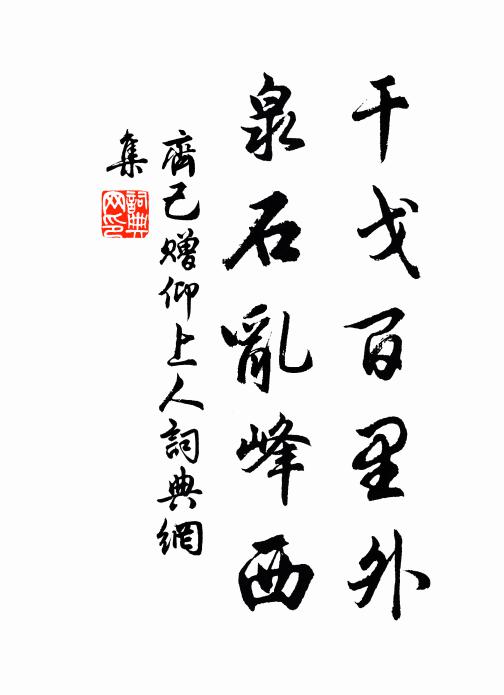 干戈百里外
泉石亂峰西
齊己贈仰上人詞典網
集
詞典
网印